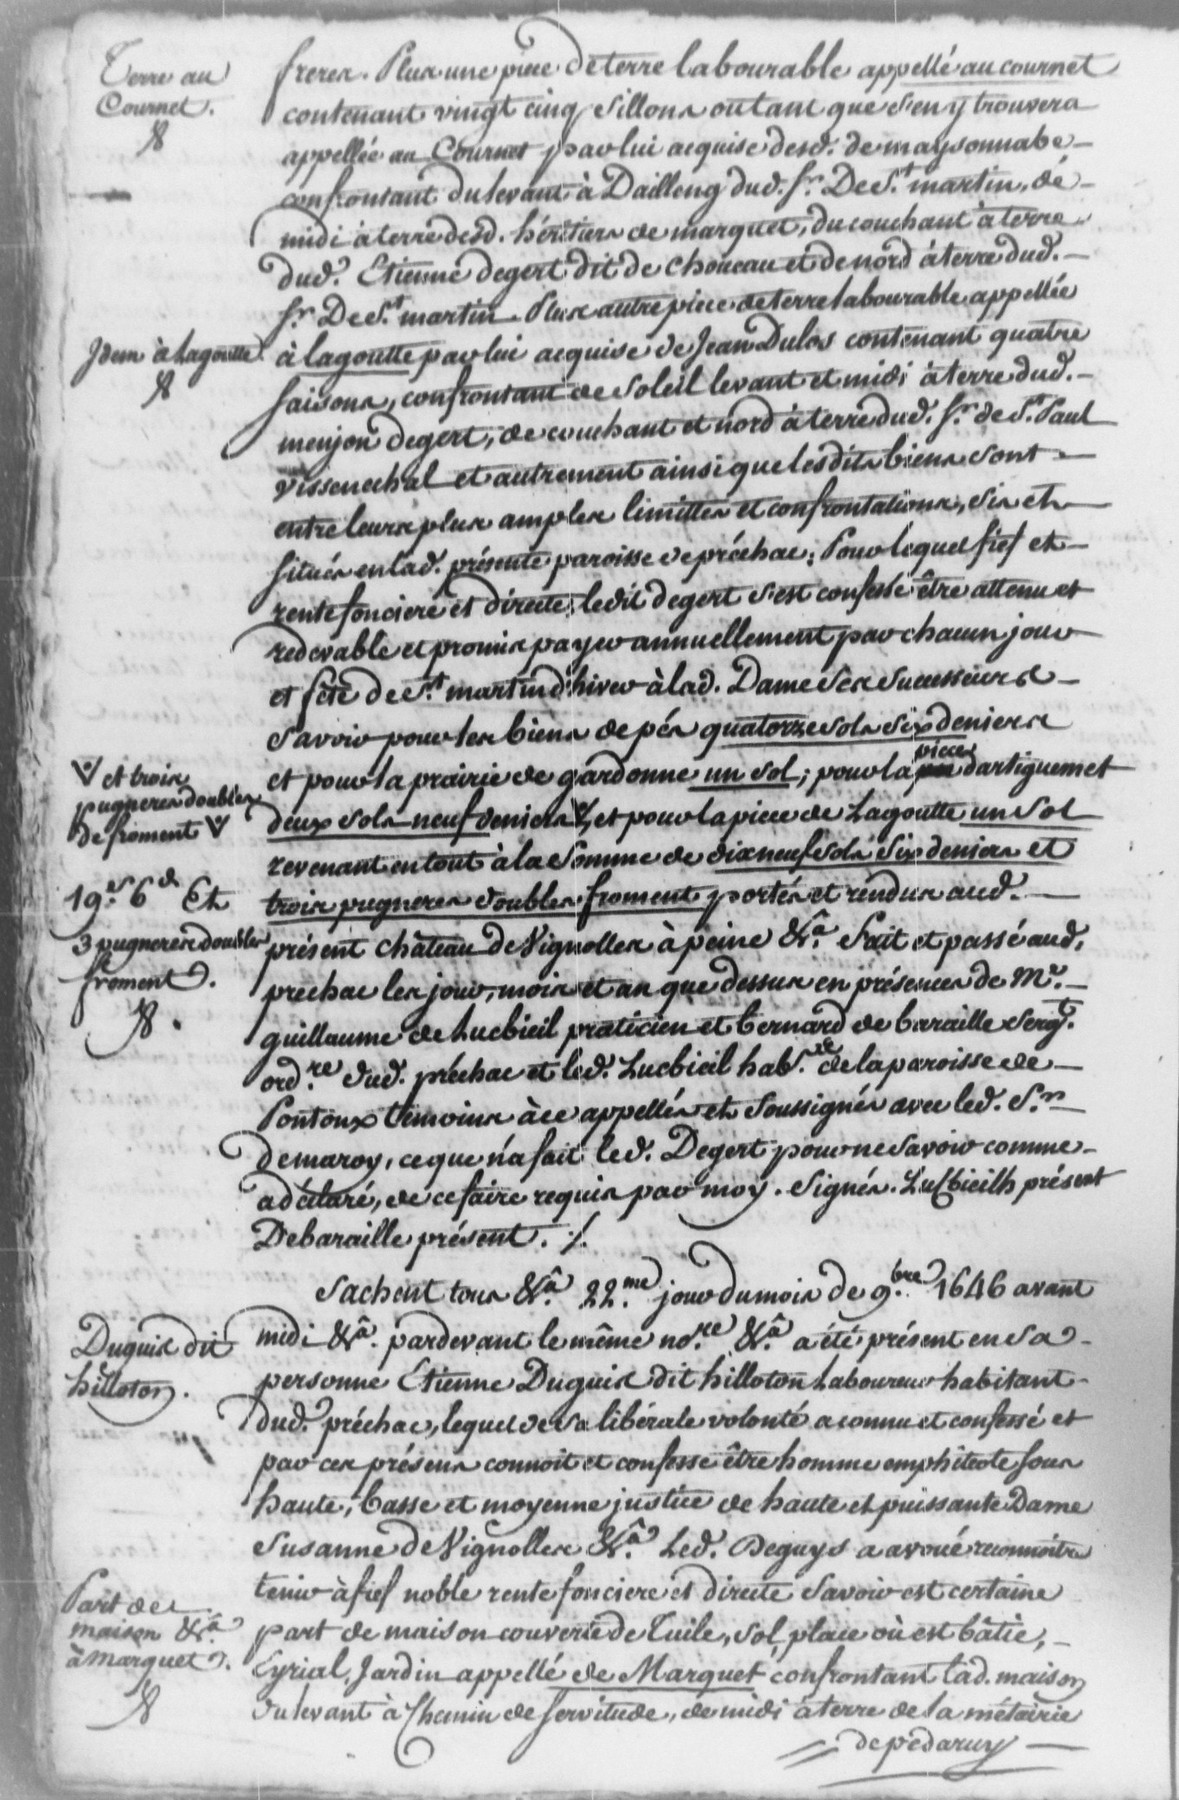 Terre au
Cournet.
freres. Plus une piece de terre labourable appellé au cournet
contenant vingt cinq sillons ou tant que s'en y trouvera
appellée au Cournet par lui acquise desd. de maysonnabe
confrontant du levant à Dailleng dud. Sr. De St. martin, de
midi à terre desd. héritiers de marquet, du couchant à terre
dud. Etienne degert dit de Choucau et de nord à terre dud.
Sr. De St. martin. Plus autre piece de terre labourable appellée
Idem à Lagoutte.
à lagoutte par lui acquise de Jean Dulos contenant quatre
saisons, confrontant de soleil levant et midi à terre dud.
menjon degert, de couchant et nord à terre dud. Sr. de St. Paul
vissenechal et autrement ainsi que lesdits biens sont
entre leurs plus amples limittes et confrontations, sis et
situés en lad. présente paroisse de préchac; Pour lequel fief et
rente fonciere et directe, ledit degert s'est confessé être attenu et
redevable et promis payer annuellement par chacun jour
et fête de St. martin d'hiver à lad. Dame ses successeurs
savoir pour les biens de pés quatorze sols six deniers
et pour la prairie de gardonne un sol; pour la piece dartiguemet
V et trois
pugneres doubles
de froment V
deux sols neuf deniers V, et pour la piece de Lagoutte un sol
revenant en tout à la somme de dix neuf sols six deniers et
19s. 6d Et
3 pugneres doubles
froment.
trois pugneres doubles froment portés et rendus aud.
présent château de Vignolles à peine &a. Fait et passé aud.
prechac les jour, mois et an que dessus en présences de Mr.
guillaume de Lucbieil praticien et bernard de baraille sergt.
ordre dud. préchac et led. Lucbieil habt. de la paroisse de
Pontoux témoins à ce appellés et soussignés avec led. Sr.
demaroy, ce que n'a fait led. Degert pour ne savoir comme
a déclaré, de ce faire requis par moy. Signés. Lucbieilh présent
Debaraille présent. ./.
Sachent tous &a. 22.me jour du mois de 9.bre 1646 avant
Duguis dit
hilloton.
midi &a. pardevant le même no.re &a. a été présent en sa
personne Etienne Duguis dit hilloton Laboureur habitant
dud. préchac, lequel de sa libérale volonté a connu et confessé et
par ces présens connoit et confesse être homme emphiteote sous
haute, basse et moyenne justice de haute et puissante Dame
Susanne de Vignolles &a. Led. Deguys a avoué reconnoitre
tenir à fief noble rente fonciere et directe savoir est certaine
Part de
maison &a
à Marquet.
part de maison couverte de Tuile, sol, place où est bâtie,
Eyrial, Jardin appellé de Marquet confrontant lad. maison
du levant à Chemin de servitude, de midi à terre de la métairie
de pédaruy